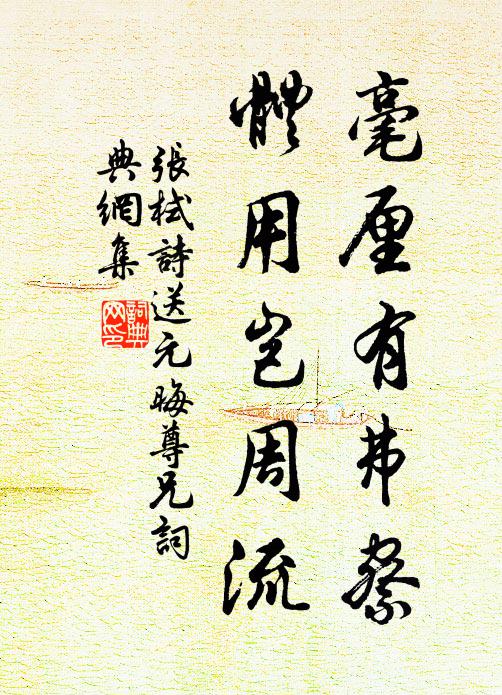 毫厘有弗察
體用岂周流
張栻詩送元晦尊兄詞
典網集
詞典
网印